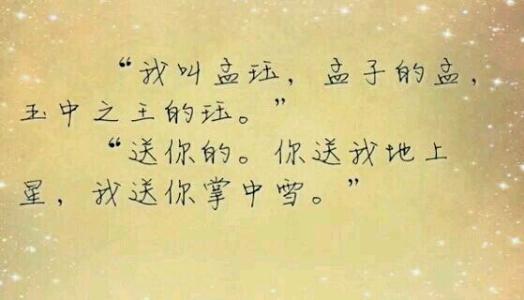 “我叫孟珏，孟子的孟，
玉中之王的珏。”
“送你的。你送我地上
星，我送你掌中雪。”